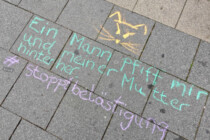 Ein Mann pfiff mir
und meiner Mutter
hinterher
#stopptbelästigung